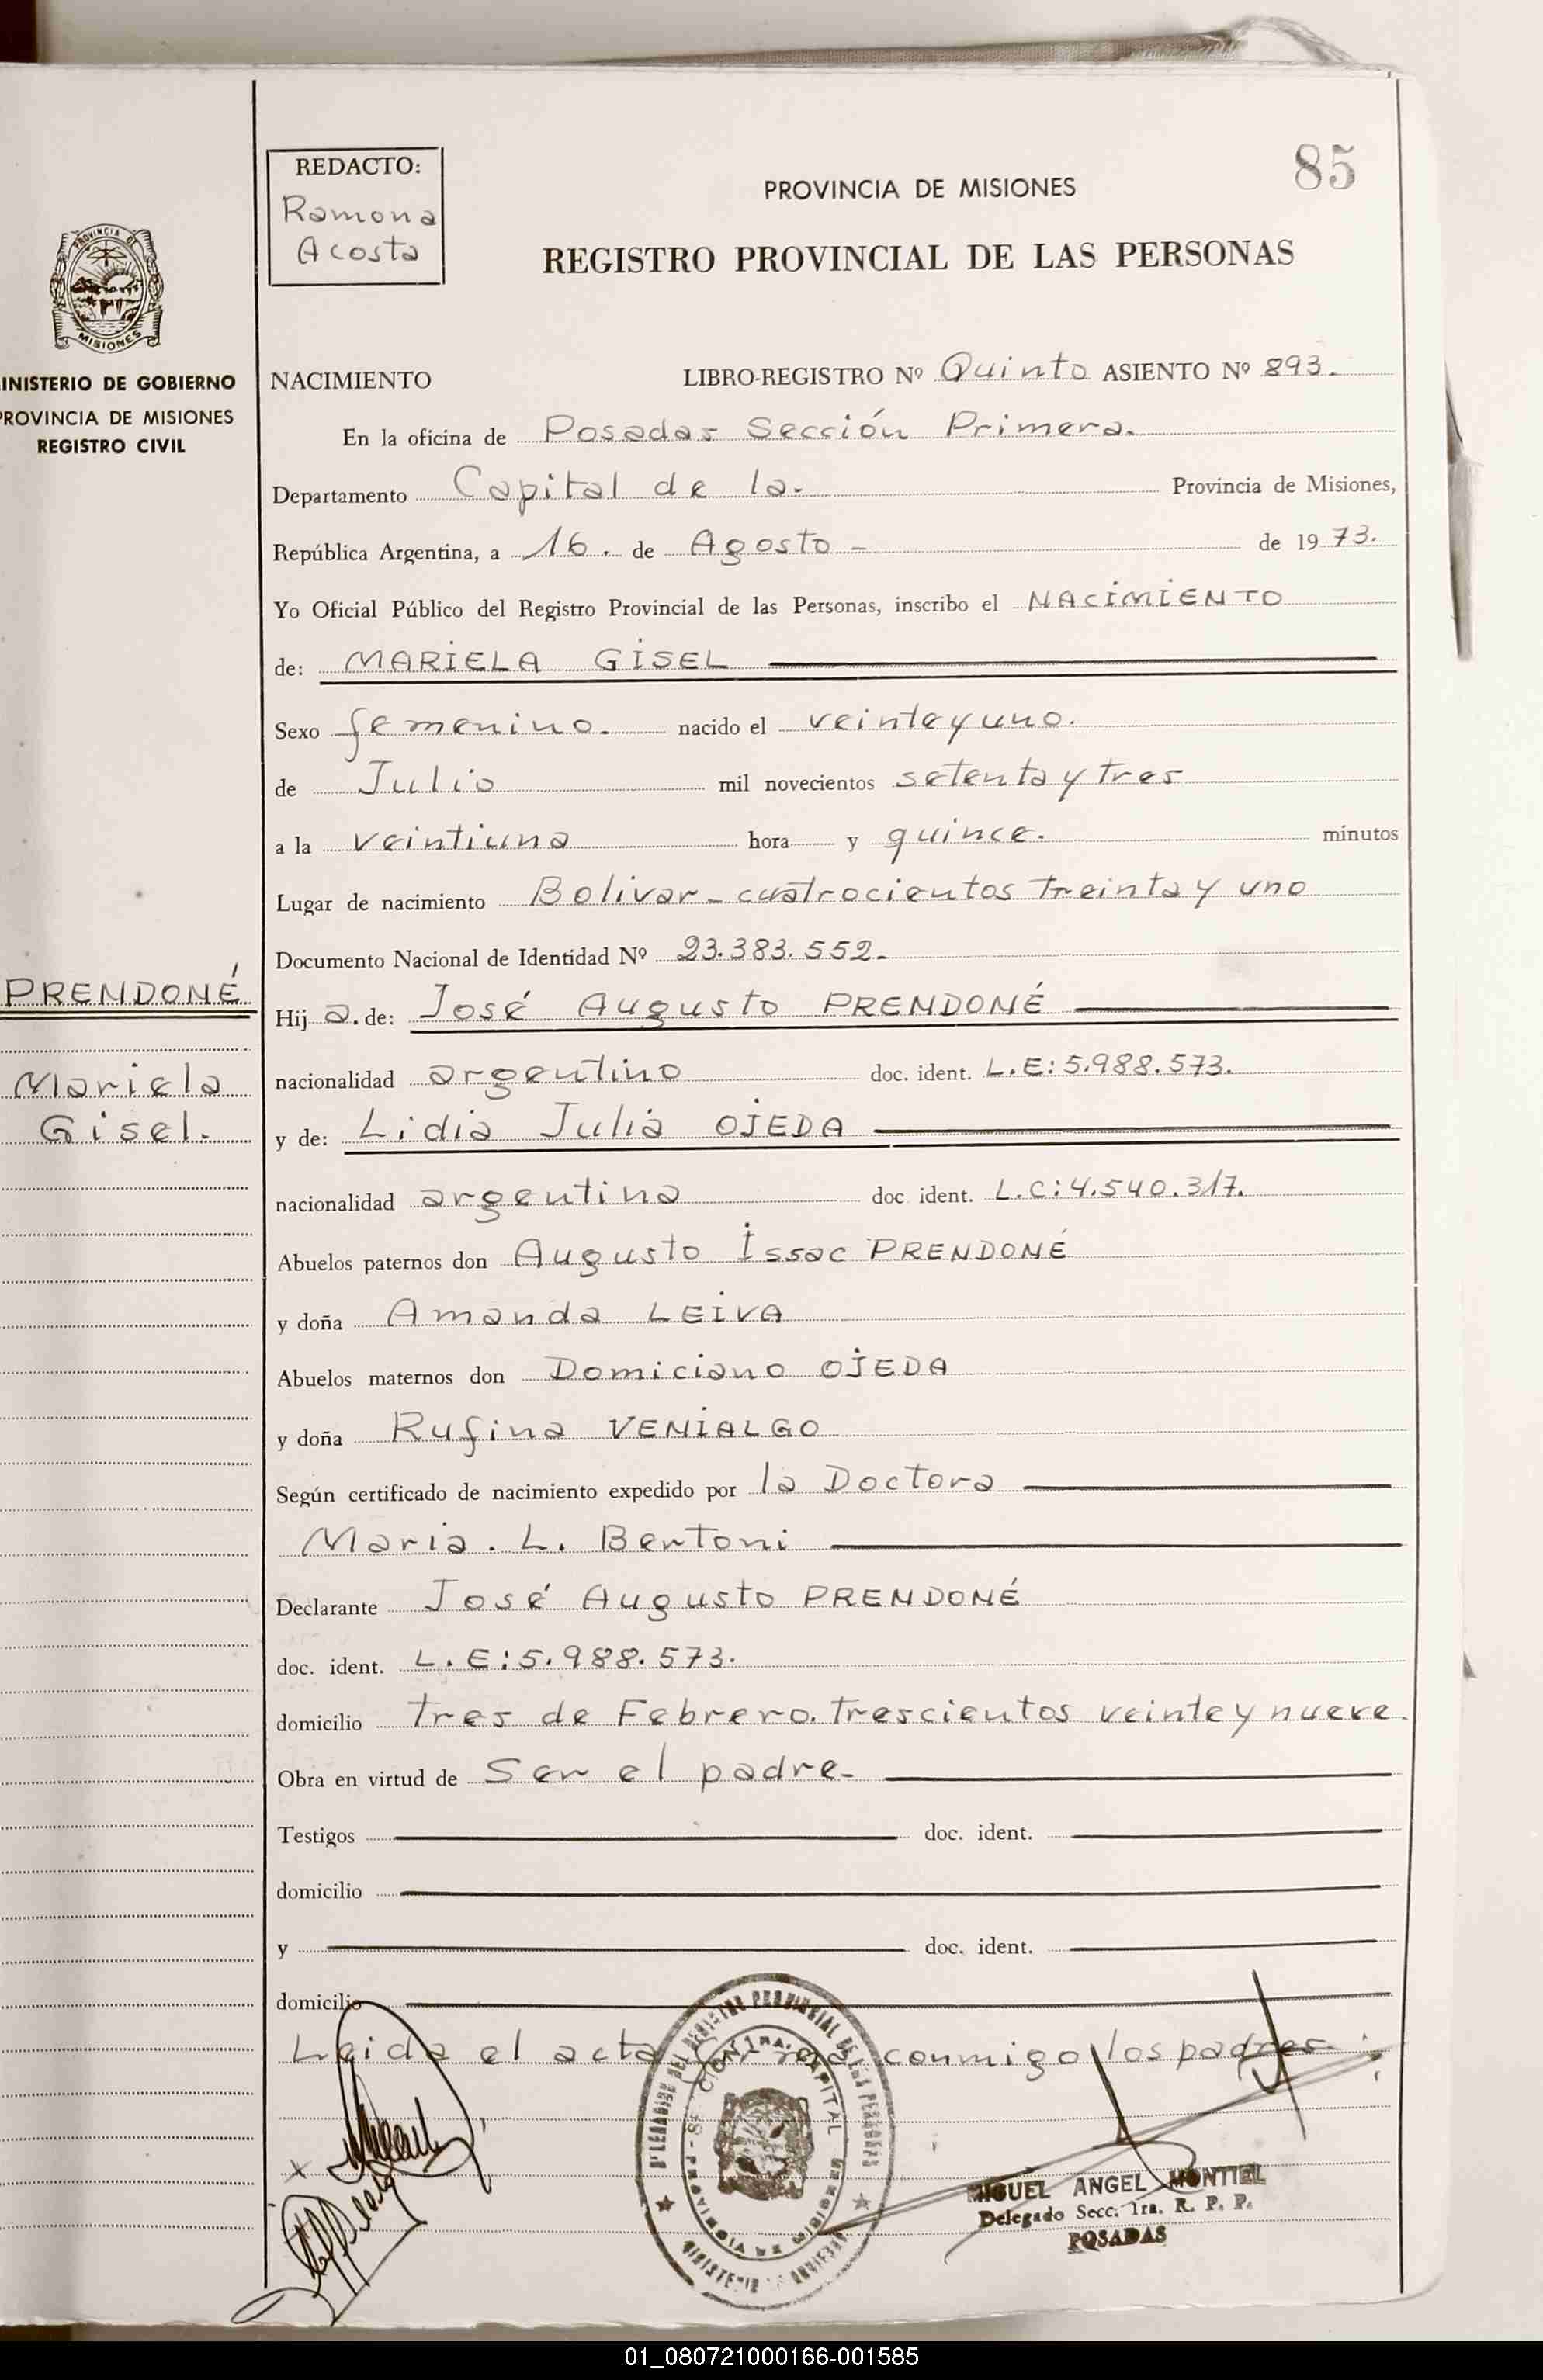 85
REDACTO:
Ramona
Acosta
PROVINCIA DE MISIONES
REGISTRO PROVINCIAL DE LAS PERSONAS
PROVINCIA DE
MISIONES
INISTERIO DE GOBIERNO
PROVINCIA DE MISIONES
REGISTRO CIVIL
NACIMIENTO LIBRO-REGISTRO Nº Quinto ASIENTO Nº 893.
En la oficina de Posadas Sección Primera.
Departamento Capital de la. Provincia de Misiones,
República Argentina, a 16. de Agosto - de 1973.
Yo Oficial Público del Registro Provincial de las Personas, inscribo el NACIMIENTO
de: MARIELA GISEL
Sexo femenino. nacido el veinte y uno.
de Julio mil novecientos setenta y tres
a la veintiuna hora y quince. minutos
Lugar de nacimiento Bolivar - cuatrocientos treinta y uno
Documento Nacional de Identidad Nº 23.383.552.
PRENDONÉ
Mariela
Gisel.
Hij a. de: José Augusto PRENDONÉ
nacionalidad argentino doc. ident. L.E: 5.988.573.
y de: Lidia Julia OJEDA
nacionalidad argentina doc ident. L.C: 4.540.317.
Abuelos paternos don Augusto Issac PRENDONÉ
y doña Amanda LEIVA
Abuelos maternos don Domiciano OJEDA
y doña Rufina VENIALGO
Según certificado de nacimiento expedido por la Doctora
Maria. L. Bertoni
Declarante José Augusto PRENDONÉ
doc. ident. L.E: 5.988.573.
domicilio tres de Febrero. trescientos veinte y nueve.
Obra en virtud de Ser el padre.
Testigos doc. ident.
domicilio
y doc. ident.
domicilio
Leida el acta conmigo los padres.
MIGUEL ANGEL MONTIEL
Delegado Secc. 1ra. R. P. P.
POSADAS
01_080721000166-001585